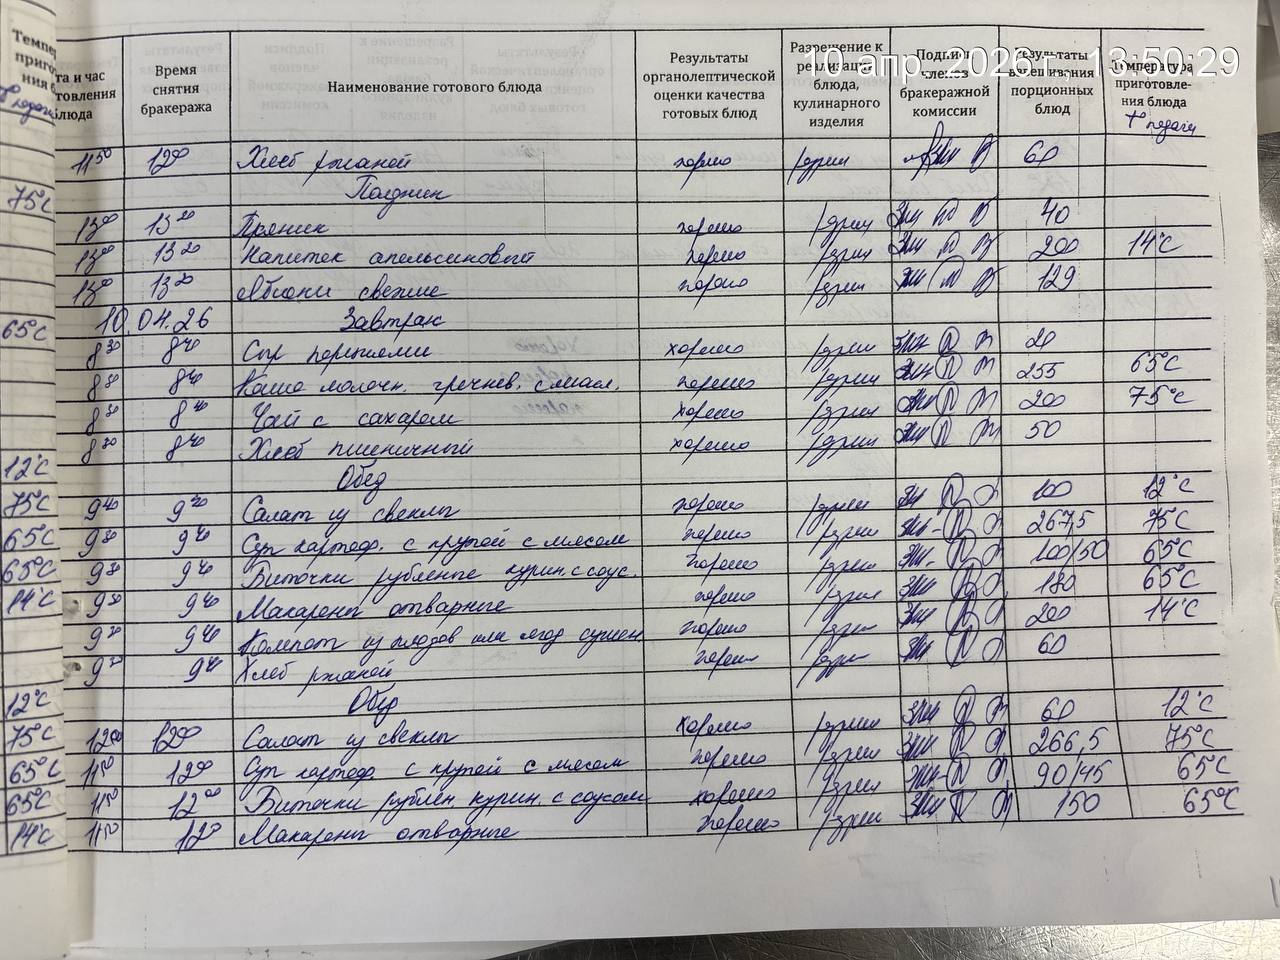 10 апр. 2026 г. 13:50:29
Время снятия бракеража
Наименование готового блюда
Результаты органолептической оценки качества готовых блюд
Разрешение к реализации блюда, кулинарного изделия
Подписи членов бракеражной комиссии
Результаты взвешивания порционных блюд
Температура приготовления блюда
t° подачи
11 50 12 00 Хлеб ржаной хорошо 60
75°C Полдник
13 00 13 20 Пряник хорошо 40
13 00 13 20 Напиток апельсиновый хорошо 200 14°C
13 00 13 20 Яблоки свежие хорошо 129
65°C 10.04.26 Завтрак
8 30 8 40 Сыр порциями хорошо 20
8 30 8 40 Каша молочн. гречнев. с масл. хорошо 255 65°C
8 30 8 40 Чай с сахаром хорошо 200 75°C
8 30 8 40 Хлеб пшеничный хорошо 50
12°C Обед
75°C Салат из свеклы хорошо 100 12°C
65°C 9 40 Суп картоф. с крупой с мясом хорошо 267,5 75°C
65°C 9 40 Биточки рубленые курин. с соус. хорошо 100/50 65°C
14°C 9 40 Макароны отварные хорошо 180 65°C
9 40 Компот из плодов или ягод сушен хорошо 200 14°C
9 40 Хлеб ржаной хорошо 60
12°C Обед
75°C 12 00 Салат из свеклы хорошо 60 12°C
65°C 11 50 12 00 Суп картоф. с крупой с мясом хорошо 266,5 75°C
65°C 11 50 12 00 Биточки рублен. курин. с соусом хорошо 90/45 65°C
14°C 11 50 12 00 Макароны отварные хорошо 150 65°C